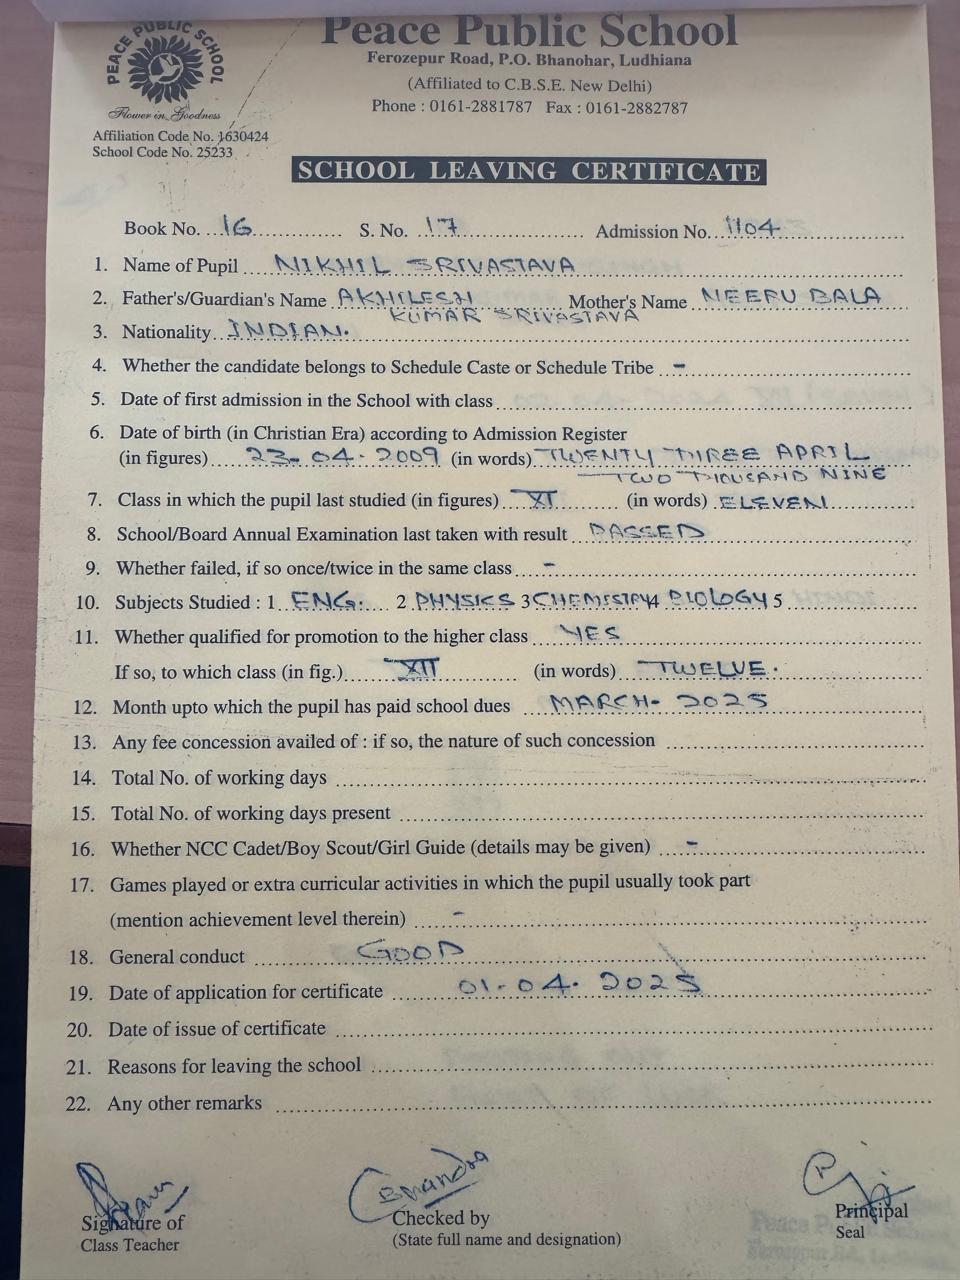 PEACE PUBLIC SCHOOL
Flower in Goodness
Affiliation Code No. 1630424
School Code No. 25233
Peace Public School
Ferozepur Road, P.O. Bhanohar, Ludhiana
(Affiliated to C.B.S.E. New Delhi)
Phone : 0161-2881787 Fax : 0161-2882787
SCHOOL LEAVING CERTIFICATE
Book No. 16 S. No. 17 Admission No. 1104
1. Name of Pupil NIKHIL SRIVASTAVA
2. Father's/Guardian's Name AKHILESH KUMAR SRIVASTAVA Mother's Name NEERU BALA
3. Nationality INDIAN.
4. Whether the candidate belongs to Schedule Caste or Schedule Tribe -
5. Date of first admission in the School with class
6. Date of birth (in Christian Era) according to Admission Register
(in figures) 23-04-2009 (in words) TWENTY THREE APRIL
TWO THOUSAND NINE
7. Class in which the pupil last studied (in figures) XI (in words) ELEVEN
8. School/Board Annual Examination last taken with result PASSED
9. Whether failed, if so once/twice in the same class -
10. Subjects Studied : 1 ENG. 2 PHYSICS 3 CHEMISTRY 4 BIOLOGY 5
11. Whether qualified for promotion to the higher class YES
If so, to which class (in fig.) XII (in words) TWELVE.
12. Month upto which the pupil has paid school dues MARCH- 2025
13. Any fee concession availed of : if so, the nature of such concession
14. Total No. of working days
15. Total No. of working days present
16. Whether NCC Cadet/Boy Scout/Girl Guide (details may be given) -
17. Games played or extra curricular activities in which the pupil usually took part
(mention achievement level therein) -
18. General conduct GOOD
19. Date of application for certificate 01-04-2025
20. Date of issue of certificate
21. Reasons for leaving the school
22. Any other remarks
Signature of
Class Teacher
Checked by
(State full name and designation)
Principal
Seal